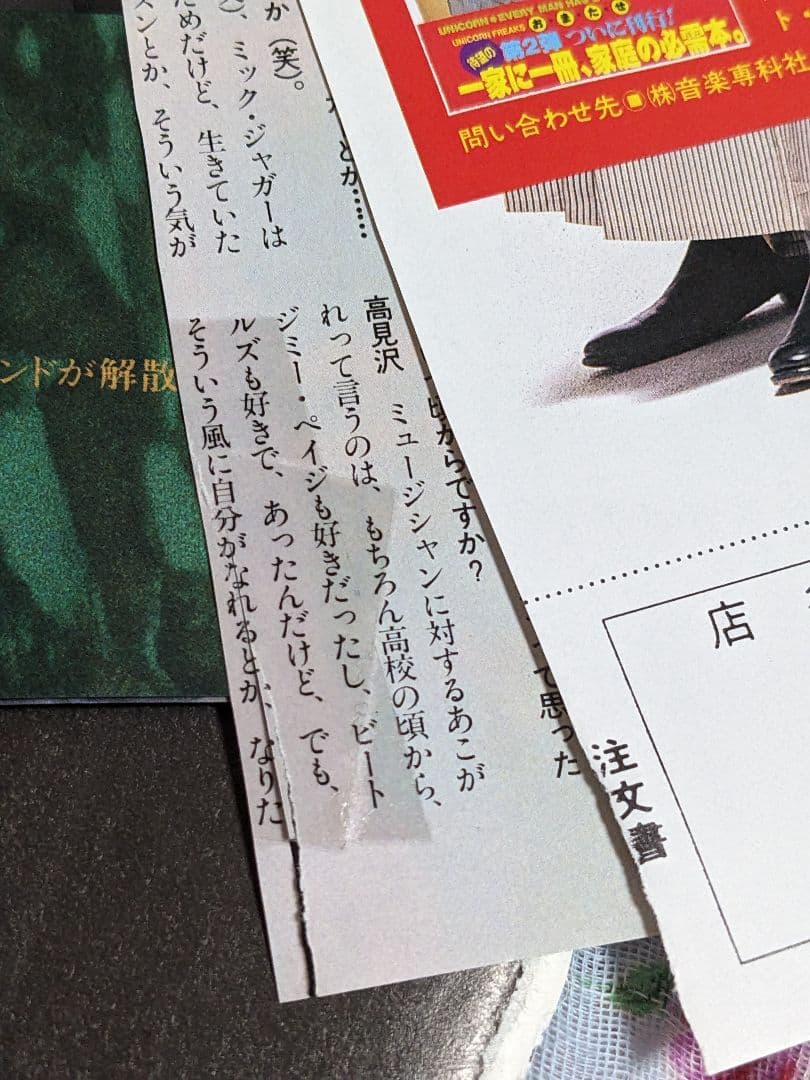 UNICORN●EVERY MAN HAS
UNICORN FREAKS おまたせ
待望の 第2弾 ついに刊行!
一家に一冊、家庭の必需本。
問い合わせ先 ㈱音楽専科社
か(笑)。
とか……
、ミック・ジャガーは
ためだけど、生きていた
スンとか、そういう気が
頃からですか?
って思った
高見沢 ミュージシャンに対するあこが
れって言うのは、もちろん高校の頃から、
ジミー・ペイジも好きだったし、ビート
ルズも好きで、あったんだけど、でも、
そういう風に自分がなれるとか、なりた
ンドが解散
店
注文書